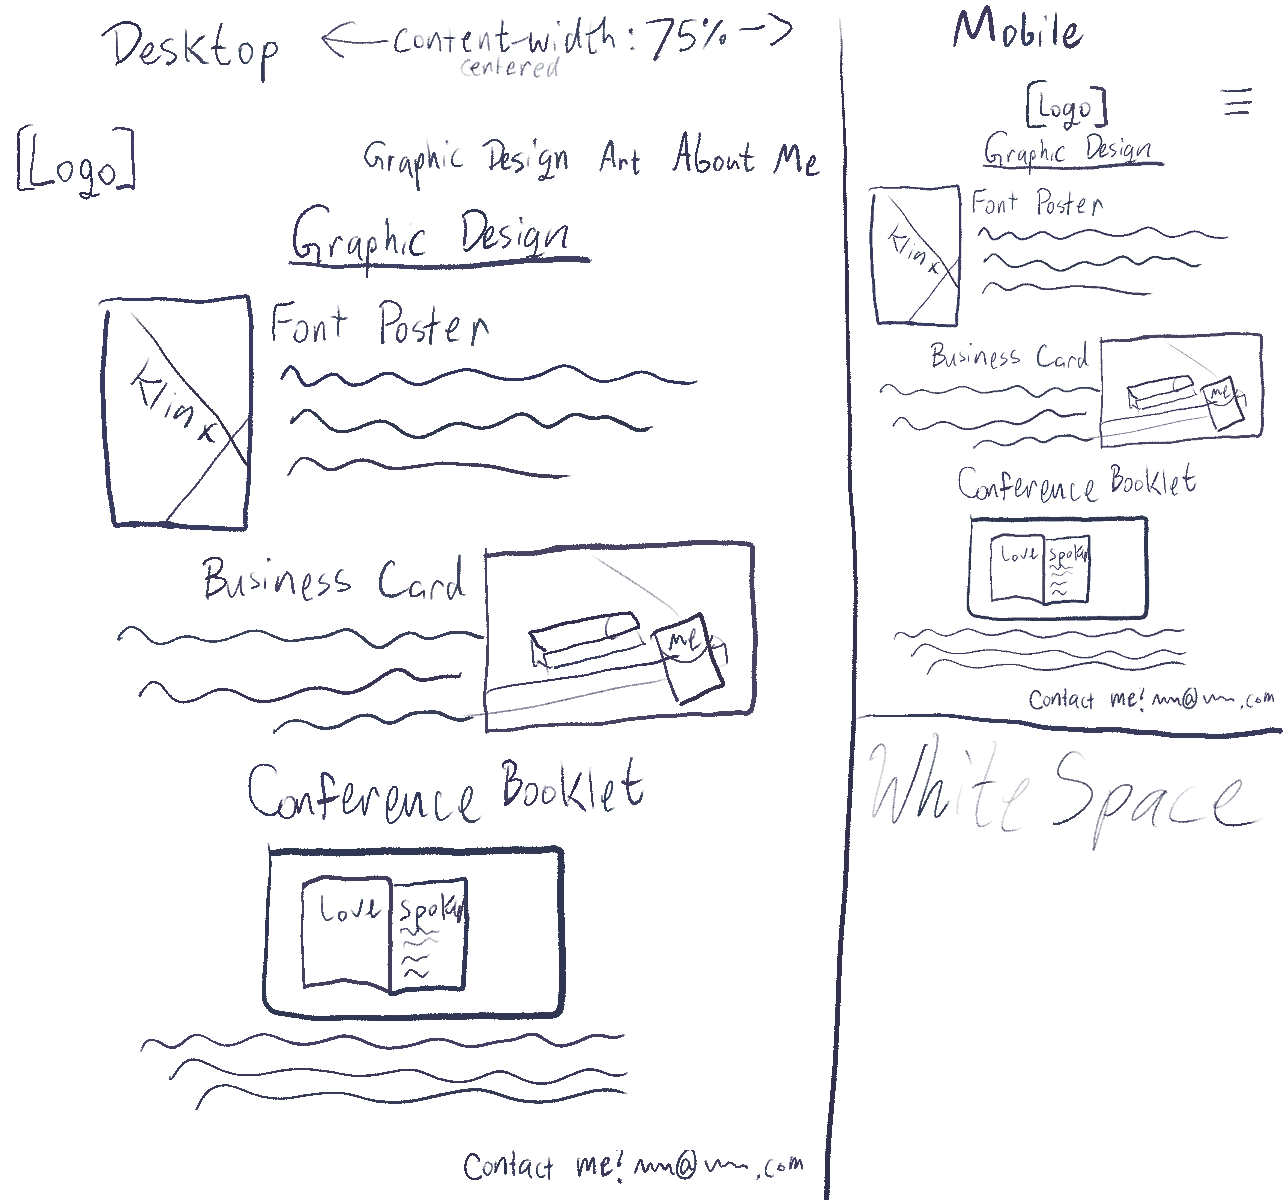 Desktop
←content-width: 75%→
centered
[Logo]
Graphic Design Art About Me
Graphic Design
Klinx
Font Poster
Business Card
me
Conference Booklet
Love
Spoken
Contact me! @ .com
Mobile
[Logo]
Graphic Design
Klinx
Font Poster
Business Card
me
Conference Booklet
Love
Contact me! @ .com
White Space